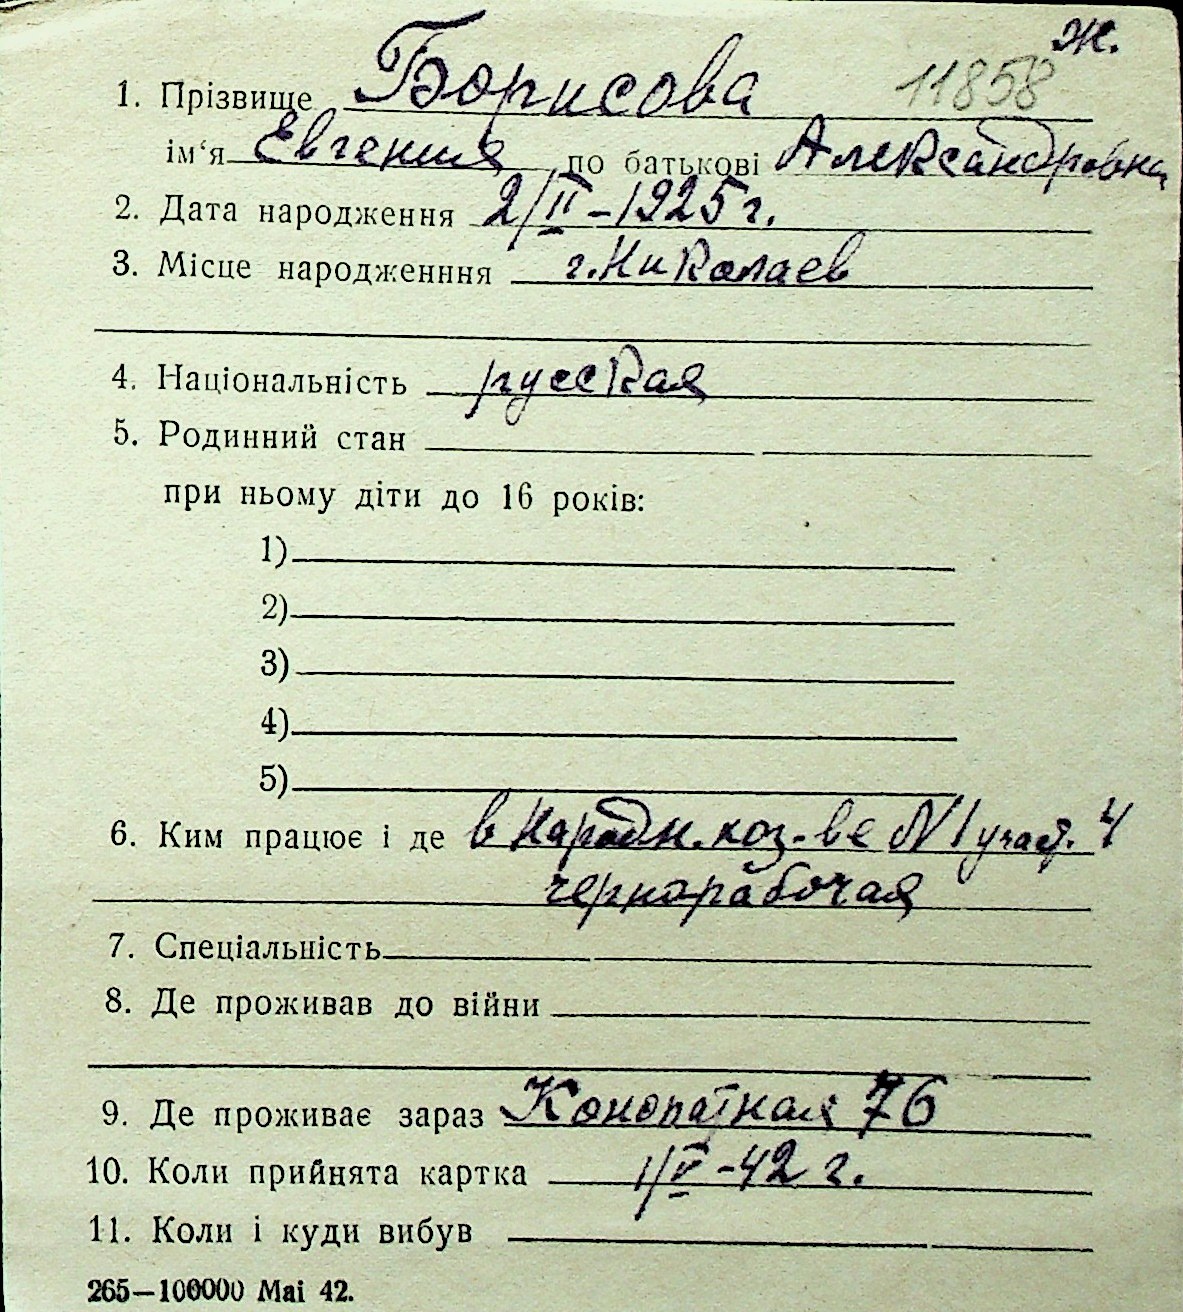 ж.
1. Прізвище Борисова 11858
ім‘я Евгения по батькові Александровна
2. Дата народження 2/II-1925 г.
3. Місце народженння г. Николаев
4. Національність русская
5. Родинний стан
при ньому діти до 16 років:
1)
2)
3)
4)
5)
6. Ким працює і де в Народн. хоз-ве №1 участ. 4
чернорабочая
7. Спеціальність
8. Де проживав до війни
9. Де проживає зараз Конопатная 76
10. Коли прийнята картка 1/V-42 г.
11. Коли і куди вибув
265—100000 Mai 42.